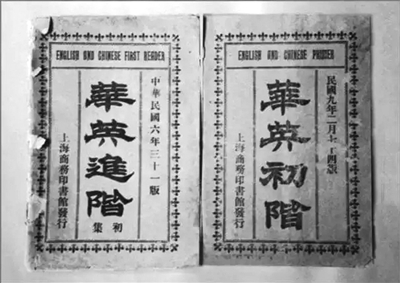 ENGLISH AND CHINESE FIRST READER
中華民國六年三十一版
華英進階
初集
上海商務印書館發行
ENGLISH AND CHINESE PRIMER
民國九年二月
華英初階
上海商務印書館發行